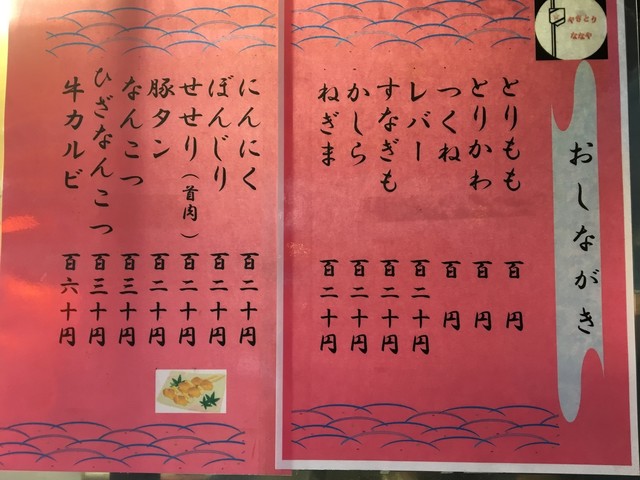 やきとり
ななや
おしながき
とりもも 百円
とりかわ 百円
つくね 百円
レバー 百二十円
すなぎも 百二十円
かしら 百二十円
ねぎま 百二十円
にんにく 百二十円
ぼんじり 百二十円
せせり(首肉) 百二十円
豚タン 百二十円
なんこつ 百三十円
ひざなんこつ 百三十円
牛カルビ 百六十円